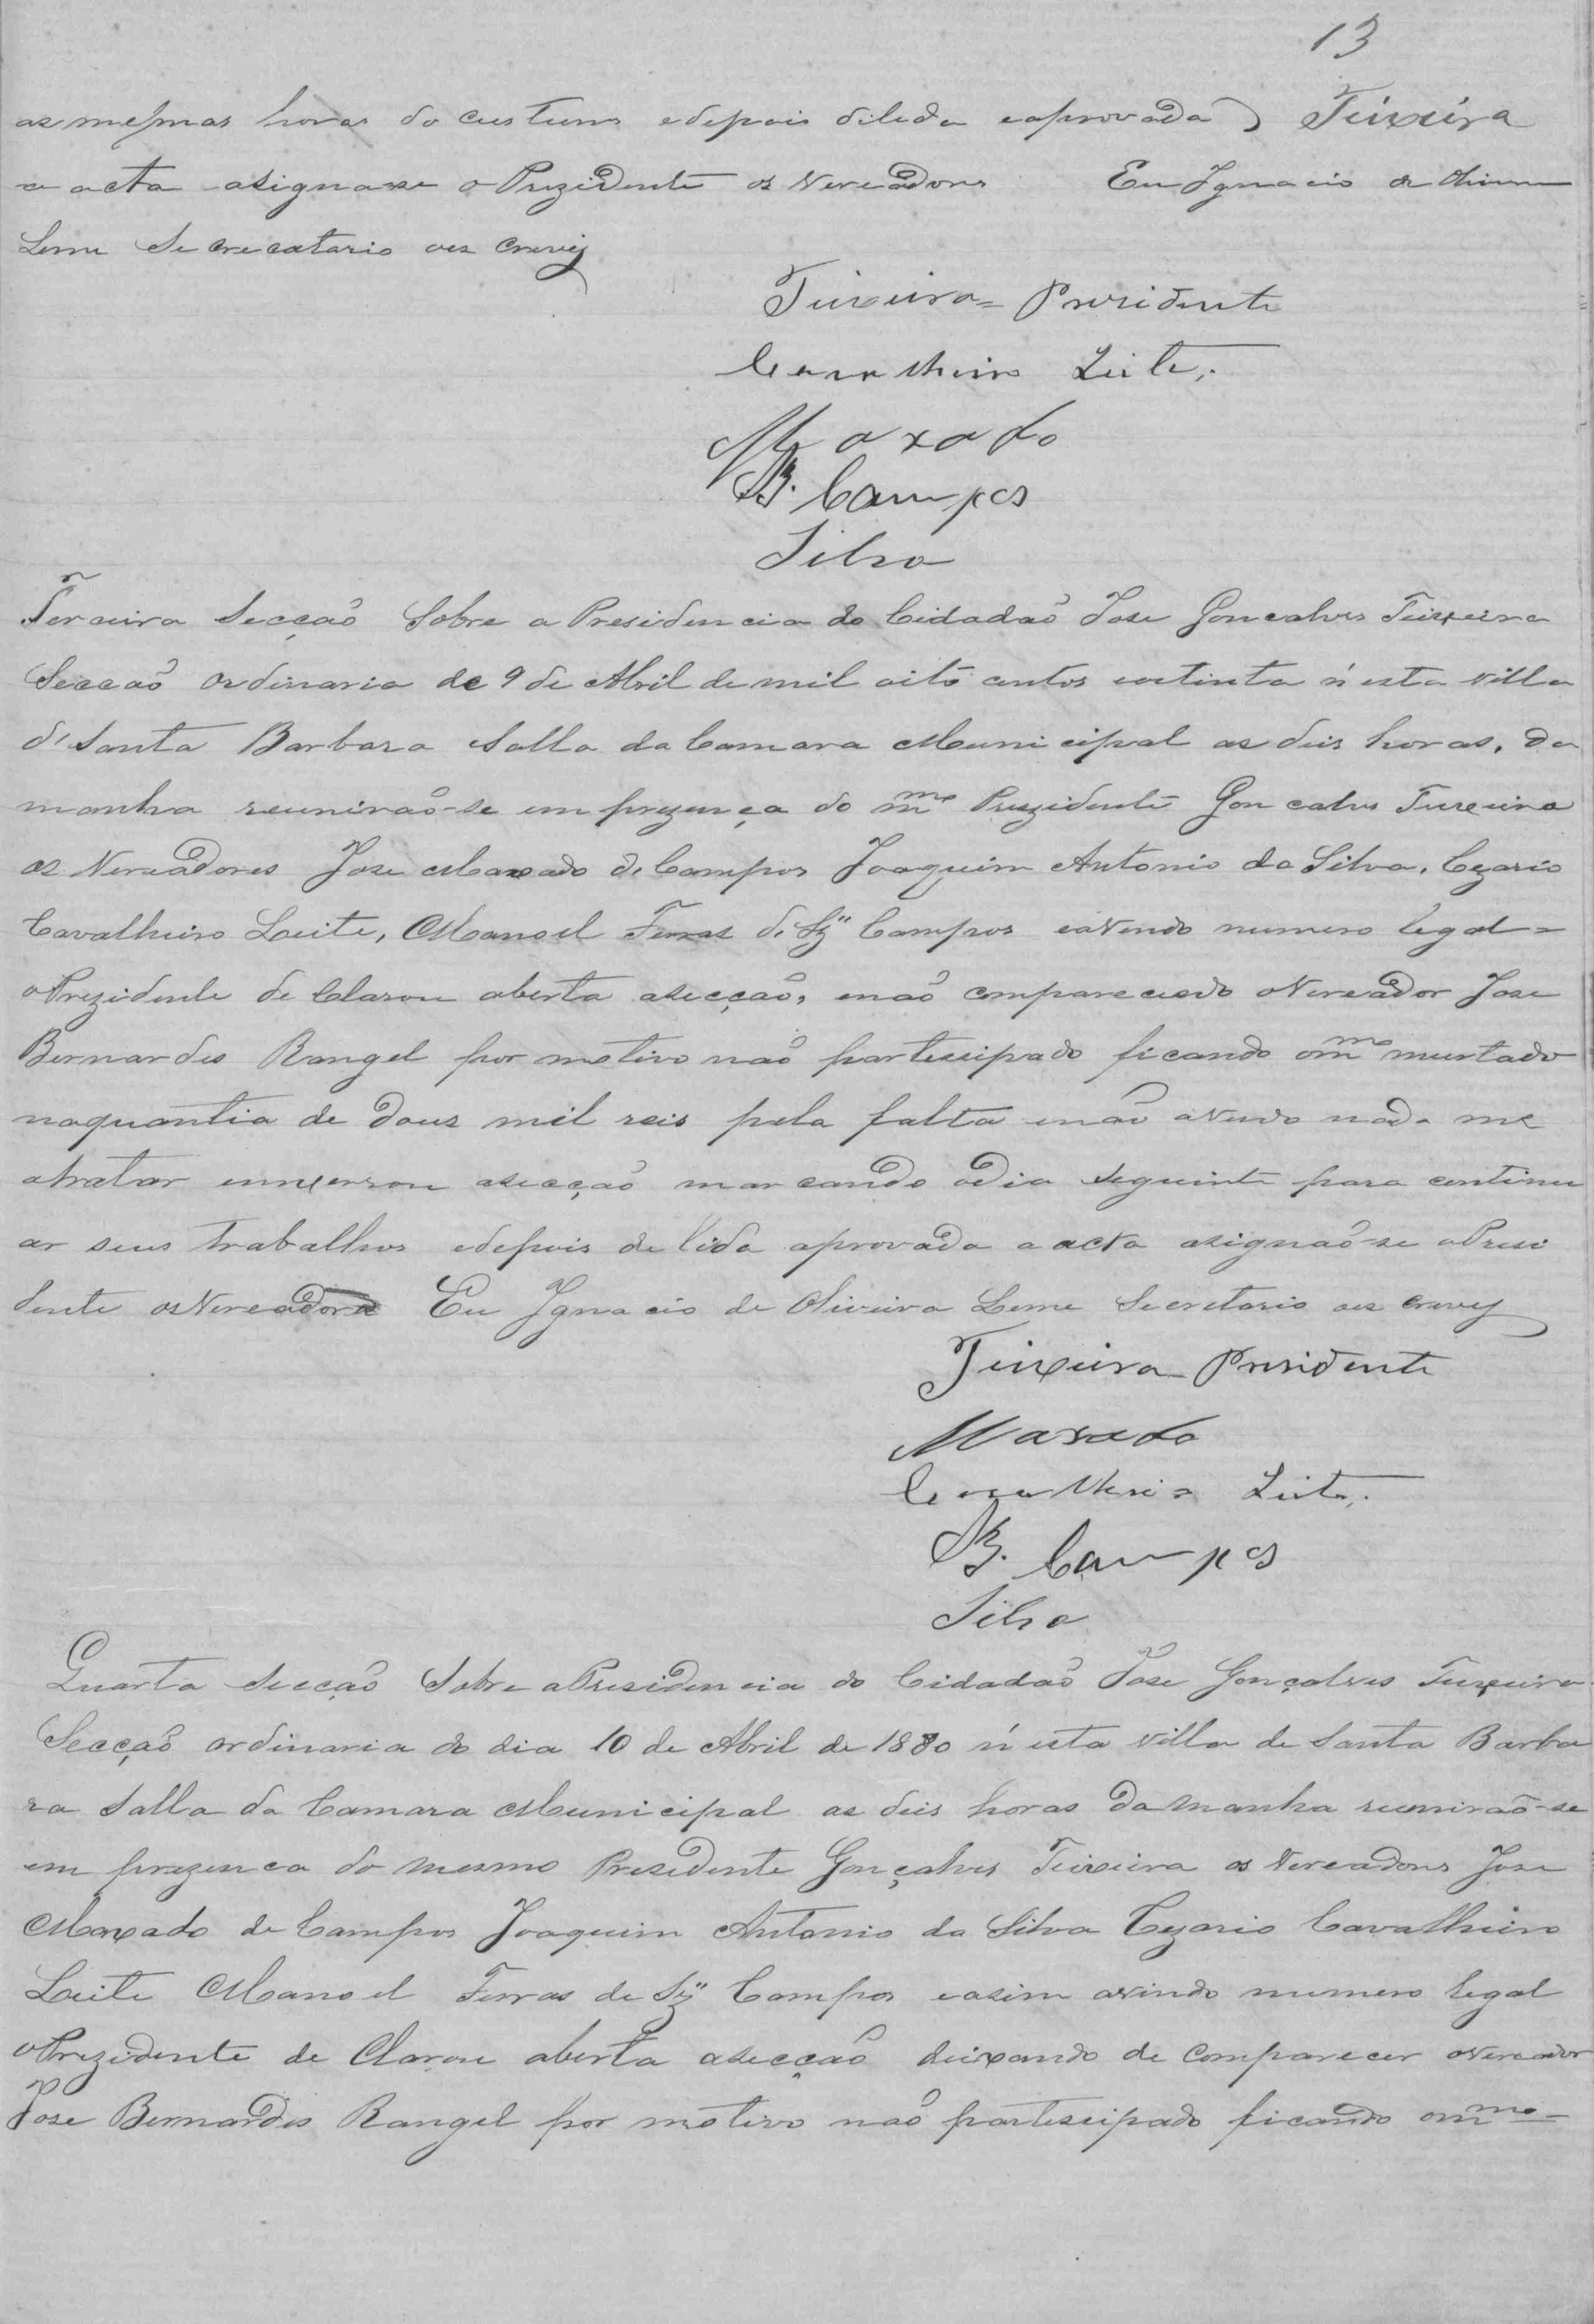 13
as mesmas horas do custume edepois dileda eaprovada Teixeira
a acta asignase o Prezidente os Vereadores Eu Ignacio de Oliveira
Leme Secrecatario oes crevij
Teixeira = Presidente
Cavalheiro Leite.
Maxado
B. Campos
Silva
Terceira Secçaõ Sobre a Presidencia do Cidadaõ Jose Goncalves Teixeira
Seccaõ ordinaria de 9 de Abril de mil oito centos eoitinta n'esta villa
d'Santa Barbara Salla da Camara Municipal as deis horas, da
manha reuniraõ-se em prezença do mmo Prezidente Goncalves Teixeira
os Vereadores Jose Maxado de Campos Joaquim Antonio da Silva, Cezario
Cavalheiro Leite, Manoel Ferras de Sz Campos eavendo numero legal =
oPrezidente de Clarou aberta asecçaõ, enaõ comparecendo oVereador Jose
Bernardes Rangel por motivo naõ partessipado ficando ommo murtado
naquantia de dous mil reis pela falta enaõ avendo nada me
atratar emserrou asecçaõ marcando odia seguinte para continu
ar seus trabalhos edepois de lida aprovada a acta asignaõ-se oPresi
dente osVereadores Eu Ignacio de Oliveira Leme Secretario oes crevij
Teixeira Presidente
Maxado
Cavalheiro Leite.
B. Campos
Silva
Quarta Secçaõ Sobre aPresidencia do Cidadaõ Jose Gonçalves Teixeira
Secçaõ ordinaria do dia 10 de Abril de 1880 n'esta villa de Santa Barba
ra Salla da Camara Municipal as deis horas damanha reuniraõ-se
em prezenca do mesmo Presidente Gonçalves Teixeira os Vereadores Jose
Maxado de Campos Joaquim Antonio da Silva Cezario Cavalheiro
Leite Manoel Ferras de Sz Campos easim avindo numero legal
oPrezidente de Clarou aberta asecçaõ deixando de comparecer oVereador
Jose Bernardes Rangel por motivo naõ partessipado ficando ommo =